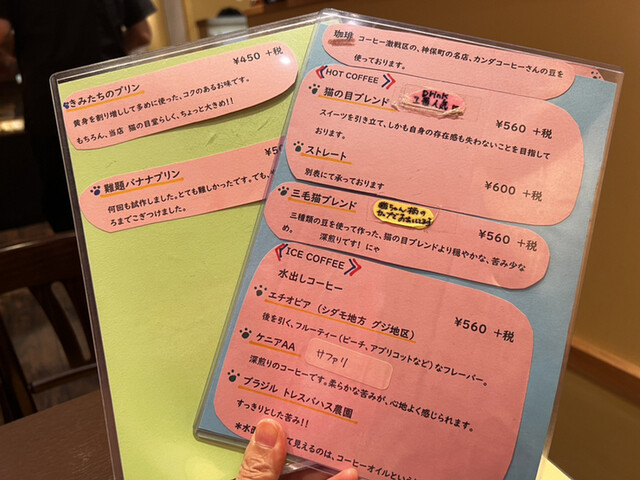 きみたちのプリン ¥450 +税
黄身を割り増しして多めに使った、コクのあるお味です。
もちろん、当店 猫の目堂らしく、ちょっと大きめ!!
難題バナナプリン
何回も試作しました。とても難しかったです。でも、
ろまでこぎつけました。
珈琲 コーヒー激戦区の、神保町の名店、カンダコーヒーさんの豆を
使っております。
HOT COFFEE
猫の目ブレンド ¥560 +税
スイーツを引き立て、しかも自身の存在感も失わないことを目指して
おります。
ストレート ¥600 +税
別表にて承っております
三毛猫ブレンド ¥560 +税
三種類の豆を使って作った、猫の目ブレンドより穏やかな、苦み少な
め。 深煎りです! にゃ
ICE COFFEE
水出しコーヒー
エチオピア (シダモ地方 グジ地区) ¥560 +税
後を引く、フルーティー(ピーチ、アプリコットなど)なフレーバー。
ケニアAA サファリ
深煎りのコーヒーです。柔らかな苦みが、心地よく感じられます。
ブラジル トレスバハス農園
すっきりとした苦み!!
て見えるのは、コーヒーオイルという